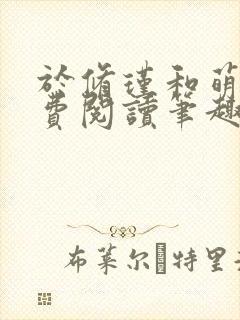 於脩瑾和萌
費閱讀筆趣
布萊尔·特里